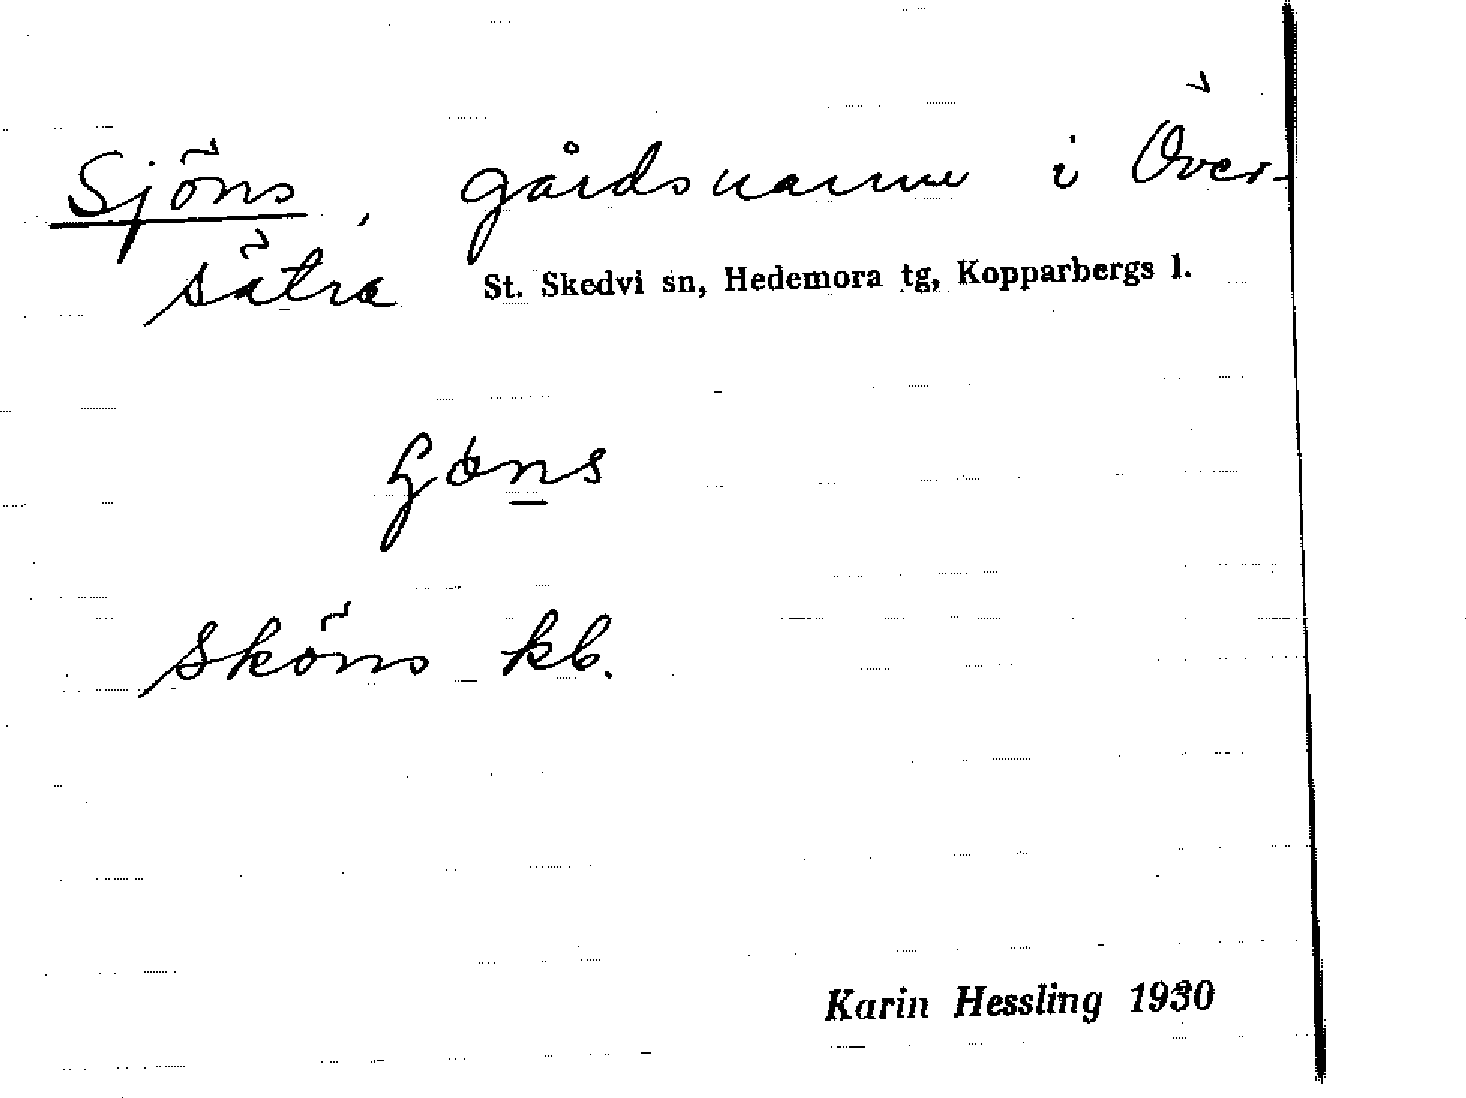 Sjöns, gårdsnamn i Över-
sätra St. Skedvi sn, Hedemora tg, Kopparbergs l.
sköns kb.
Karin Hessling 1930